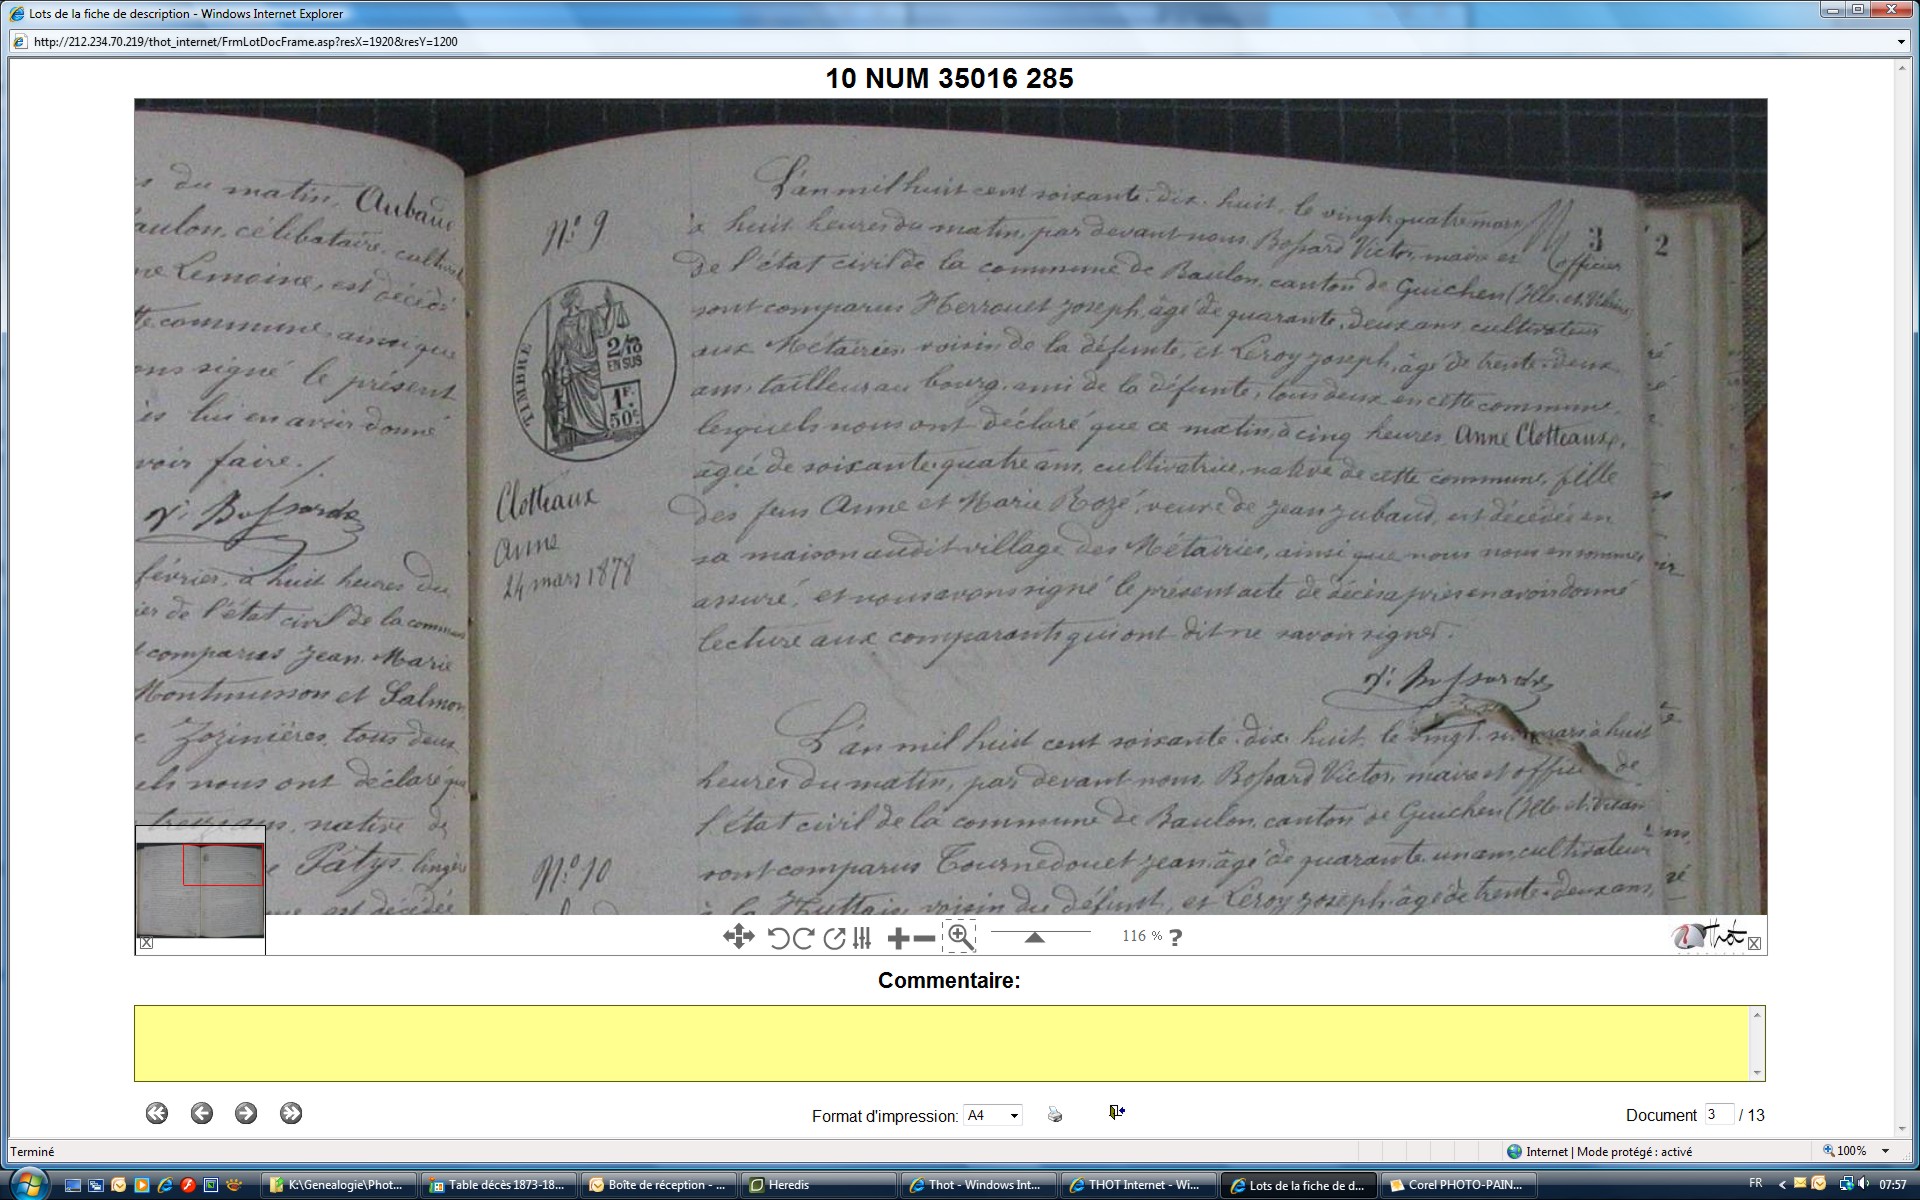 Lots de la fiche de description - Windows Internet Explorer
http://212.234.70.219/thot_internet/FrmLotDocFrame.asp?resX=1920&resY=1200
10 NUM 35016 285
du matin, Aubaud
célibataire, cultivat
Lemoine, est décédé
commune, ainsi que
ons signé le présent
lui en avoir donné
voir faire ./.
V. Bossard
février, à huit heures du
ier de l'état civil de la commun
comparus Jean Marie
Montmusson et Salmon
tous deux
els nous ont déclaré que
treize ans, native de
Pâtys, lingèr
est décédée
N° 9
TIMBRE
2/10
EN SUS
1F.
50C.
Clotteaux
Anne
24 mars 1878
N° 10
3
2
L'an mil huit cent soixante-dix-huit, le vingt-quatre mars
à huit heures du matin, par devant nous Bossard Victor, maire et officier
de l'état civil de la commune de Baulon, canton de Guichen (Ille-et-Vilaine)
sont comparus Herrouet Joseph, âgé de quarante-deux ans, cultivateur
aux Métairies, voisin de la défunte, et Leroy Joseph, âgé de trente-deux
ans, tailleur au bourg, ami de la défunte, tous deux en cette commune,
lesquels nous ont déclaré que ce matin, à cinq heures, Anne Clotteaux,
âgée de soixante-quatre ans, cultivatrice, native de cette commune, fille
des feus Anne et Marie Rozé, veuve de Jean Jubaud, est décédée en
sa maison audit village des Métairies, ainsi que nous nous en sommes
assuré, et nous avons signé le présent acte de décès après en avoir donné
lecture aux comparants qui ont dit ne savoir signer.
V. Bossard
L'an mil huit cent soixante-dix-huit, le vingt- mars à huit
heures du matin, par devant nous, Bossard Victor, maire et officier de
l'état civil de la commune de Baulon, canton de Guichen (Ille-et-Vilaine
sont comparus Tournedouet Jean, âgé de quarante-un ans, cultivateur
à la Huttais, voisin du défunt, et Leroy Joseph, âgé de trente-deux ans,
116 % ?
Thot
Commentaire:
Format d'impression: A4
Document 3 / 13
Terminé
Internet | Mode protégé : activé
100%
K:\Genealogie\Phot...
Table décès 1873-18...
Boîte de réception - ...
Heredis
Thot - Windows Int...
THOT Internet - Wi...
Lots de la fiche de d...
Corel PHOTO-PAIN...
FR
07:57